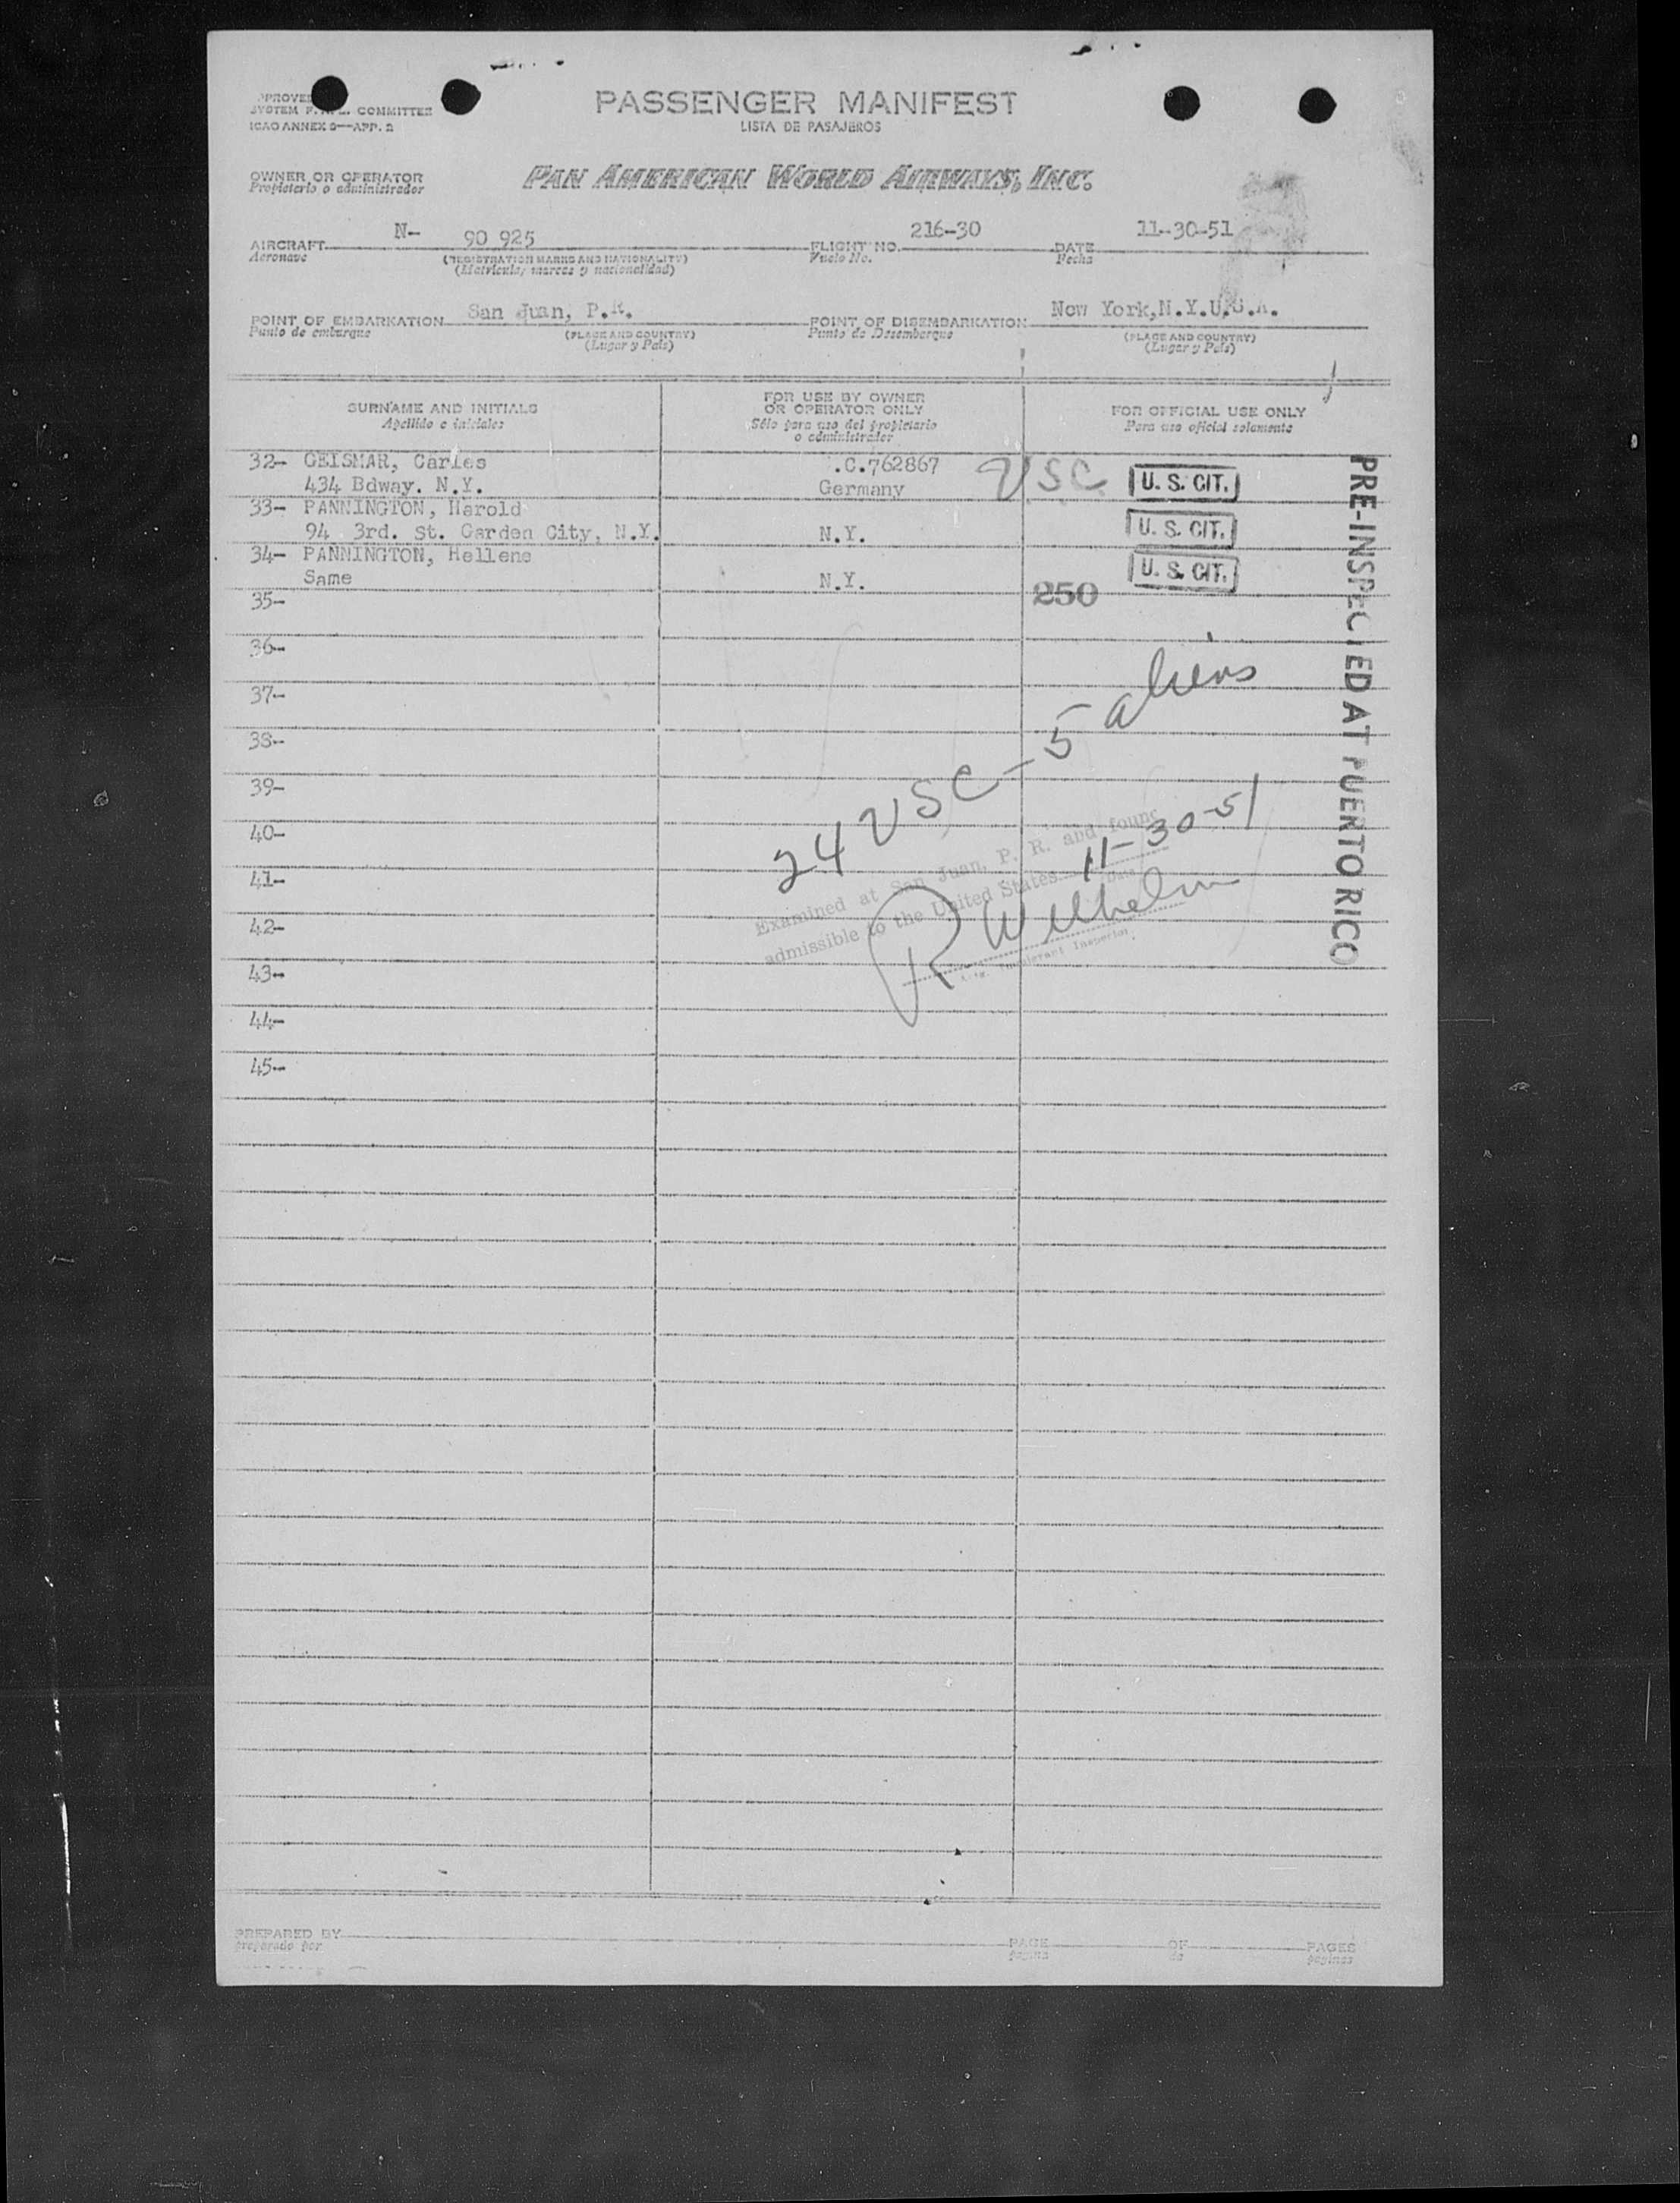 COMMITTEE
ICAO ANNEX 9—APP. 2
PASSENGER MANIFEST
LISTA DE PASAJEROS
OWNER OR OPERATOR
Propietario o administrador
PAN AMERICAN WORLD AIRWAYS, INC.
AIRCRAFT N- 90 925 FLIGHT NO. 216-30 DATE 11-30-51
Aeronave (REGISTRATION MARKS AND NATIONALITY) Vuelo No. Fecha
(Matricula, marcas y nacionalidad)
POINT OF EMBARKATION San Juan, P.R. POINT OF DISEMBARKATION New York,N.Y.U.S.A.
Punto de embarque (PLACE AND COUNTRY) Punto de Desembarque (PLACE AND COUNTRY)
(Lugar y País) (Lugar y País)
SURNAME AND INITIALS
Apellido e iniciales
FOR USE BY OWNER
OR OPERATOR ONLY
Sólo para uso del propietario
o administrador
FOR OFFICIAL USE ONLY
Para uso oficial solamente
32- GEISMAR, Carles .C.762867 USC U. S. CIT.
434 Bdway. N.Y. Germany
33- PANNINGTON, Harold
94 3rd. St. Garden City, N.Y. N.Y. U. S. CIT.
34- PANNINGTON, Hellene
Same N.Y. U. S. CIT.
35- 250
36-
37-
38-
39-
40-
41-
42-
43-
44-
45-
24 USC - 5 aliens
Examined at San Juan, P. R. and found
admissible to the United States 11-30-51
Date
R Wilhelm
Immigrant Inspector
PRE-INSPECTED AT PUERTO RICO
PREPARED BY PAGE OF PAGES
preparado por página de páginas